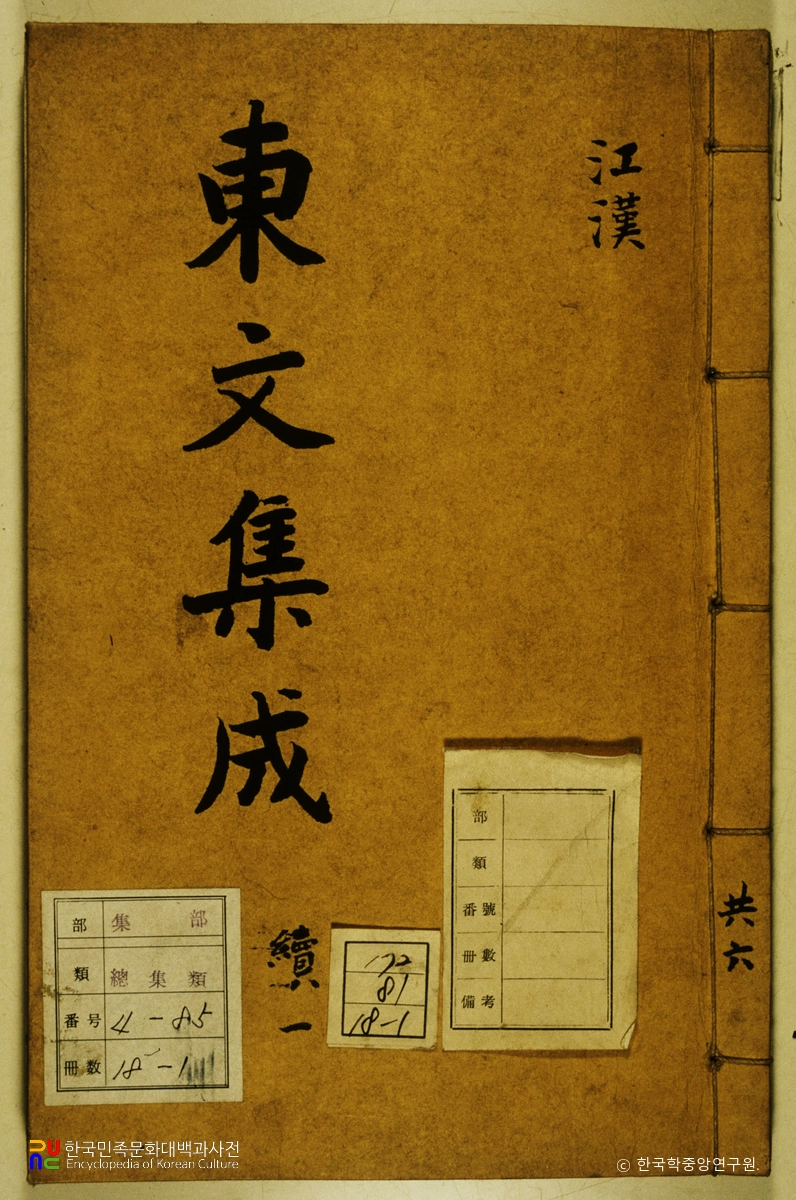 江漢
東文集成
續一
共六
部 集部
類 總集類
番号 4-85
冊数 18-1
172
81
18-1
部
類
番號
冊數
備考
한국민족문화대백과사전
Encyclopedia of Korean Culture
© 한국학중앙연구원.